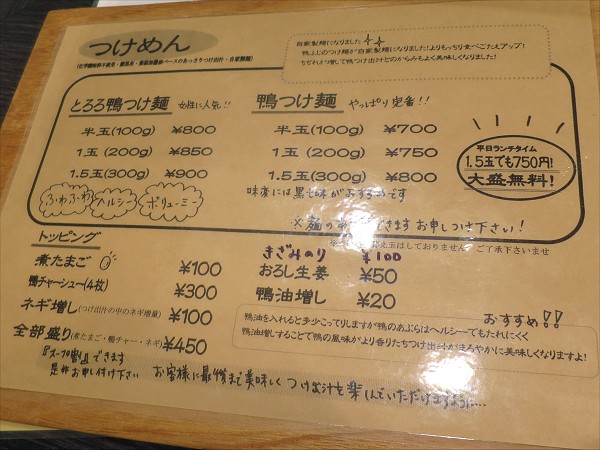 つけめん
自家製麺になりました
鴨ぶじのつけ麺が自家製麺になりました!よりもっちり食べごたえアップ!
ちぢれが増してつけ出汁とのからみもよく美味しくなりました!
とろろ鴨つけ麺 女性に人気!!
半玉(100g) ¥800
1玉(200g) ¥850
1.5玉(300g) ¥900
ふわふわ ヘルシー ボリューミー
鴨つけ麺 やっぱり定番!!
半玉(100g) ¥700
1玉(200g) ¥750
1.5玉(300g) ¥800
味変には黒七味がおすすめです
平日ランチタイム
1.5玉でも750円!
大盛無料!
※麺の できます お申しつけ下さい!
玉はしておりません。ご了承下さいませ
トッピング
煮たまご ¥100
鴨チャーシュー(4枚) ¥300
ネギ増し(つけ出汁の中のネギ増量) ¥100
全部盛り(煮たまご・鴨チャー・ネギ) ¥450
きざみのり ¥100
おろし生姜 ¥50
鴨油増し ¥20
おすすめ!!
鴨油を入れると多少こってりしますが鴨のあぶらはヘルシーでもたれにくく
鴨油増しすることで鴨の風味がより香りたちつけ出汁がまろやかに美味しくなりますよ!
『スープ割り』できます
是非お申し付け下さい
お客様に最後まで美味しくつけ出汁を楽しんでいただけますように…